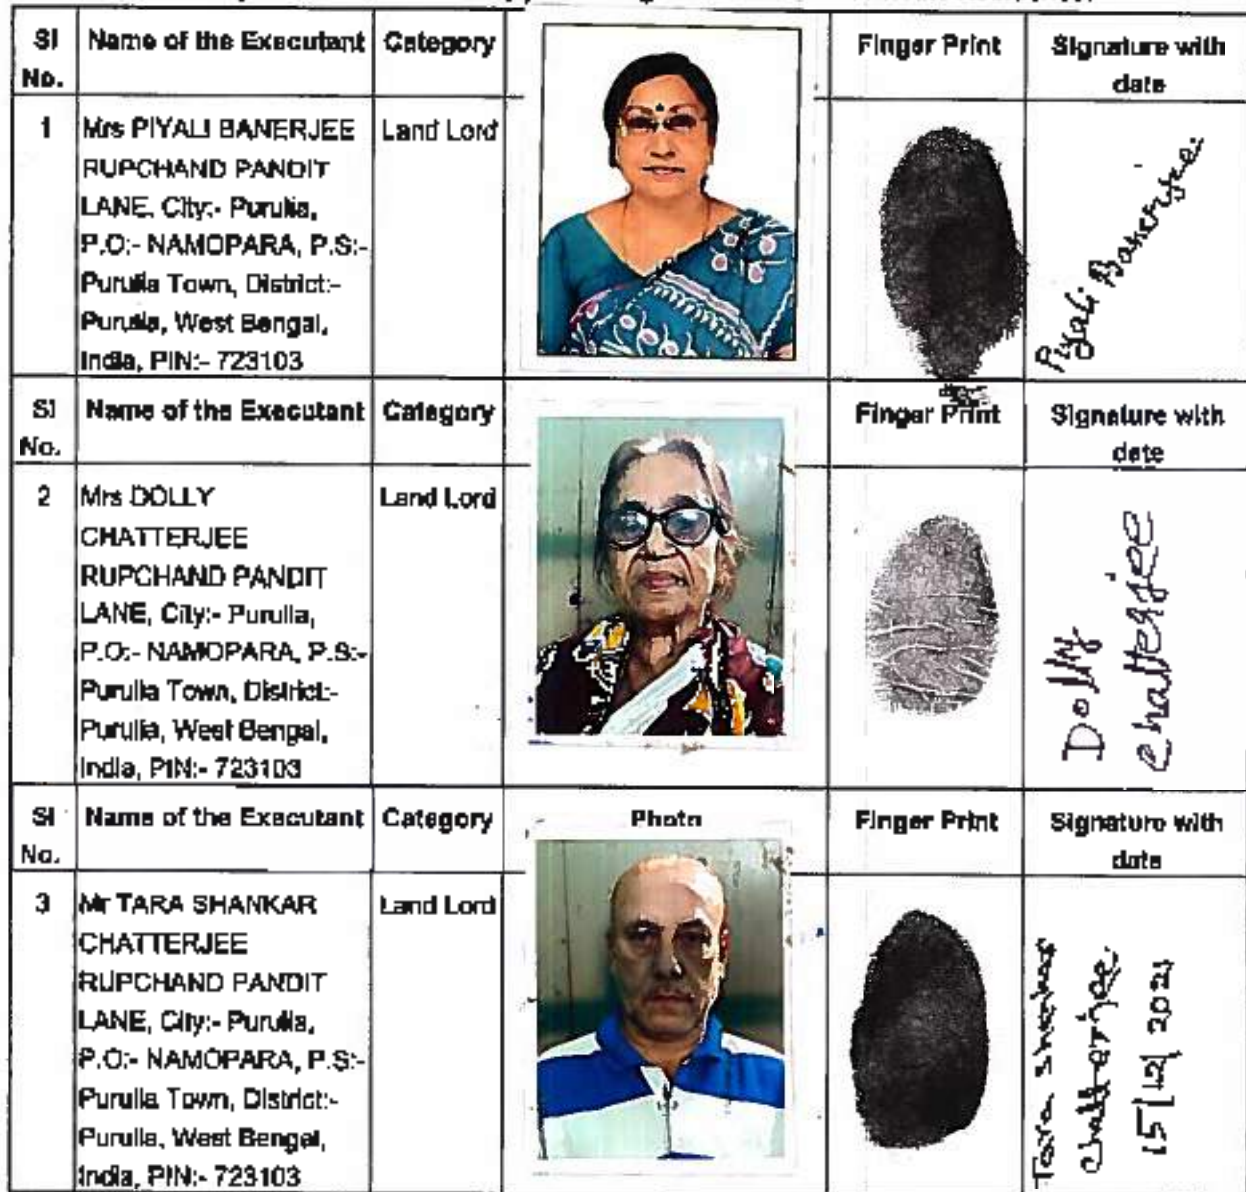 Sl No. Name of the Executant Category Finger Print Signature with date
1 Mrs PIYALI BANERJEE Land Lord
RUPCHAND PANDIT
LANE, City:- Purulia,
P.O:- NAMOPARA, P.S:-
Purulia Town, District:-
Purulia, West Bengal,
India, PIN:- 723103
Piyali Banerjee.
Sl No. Name of the Executant Category Finger Print Signature with date
2 Mrs DOLLY Land Lord
CHATTERJEE
RUPCHAND PANDIT
LANE, City:- Purulia,
P.O:- NAMOPARA, P.S:-
Purulia Town, District:-
Purulia, West Bengal,
India, PIN:- 723103
Dolly
Chatterjee
Sl No. Name of the Executant Category Photo Finger Print Signature with date
3 Mr TARA SHANKAR Land Lord
CHATTERJEE
RUPCHAND PANDIT
LANE, City:- Purulia,
P.O:- NAMOPARA, P.S:-
Purulia Town, District:-
Purulia, West Bengal,
India, PIN:- 723103
Tara Shankar
Chatterjee.
15/12/2021